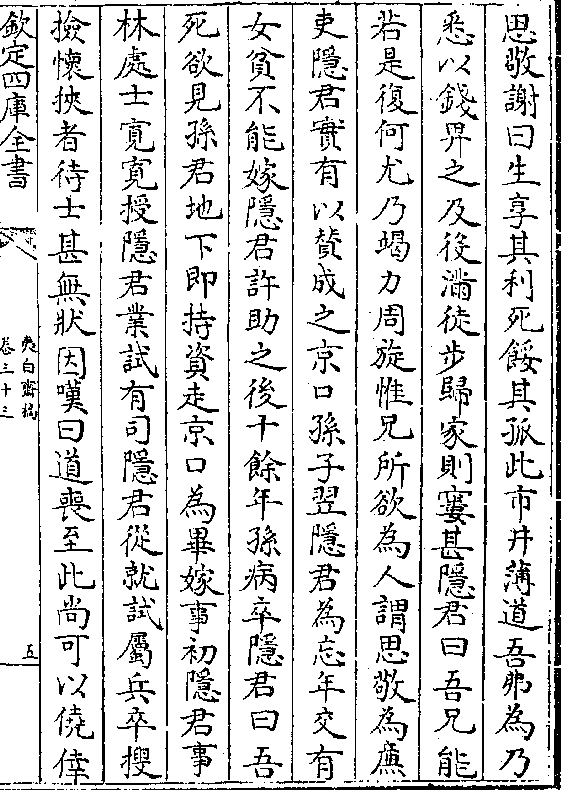 思敬謝曰生享其利死餒其孤此市井薄道吾弗為乃
悉以錢畀之及後滿徒步歸家則窶甚隱君曰吾兄能
若是復何尤乃竭力周旋惟兄所欲為人謂思敬為廉
吏隱君實有以賛成之京口孫子翌隱君為忘年交有
女貧不能嫁隱君許助之後十餘年孫病卒隱君曰吾
死欲見孫君地下即持資走京口為畢嫁事初隱君事
林處士寛寛授隱君業試有司隱君從就試屬兵卒搜
撿懷挾者待士甚無狀因嘆曰道喪至此尚可以僥倖
欽定四庫全書
夷白齋稿
卷三十三
五